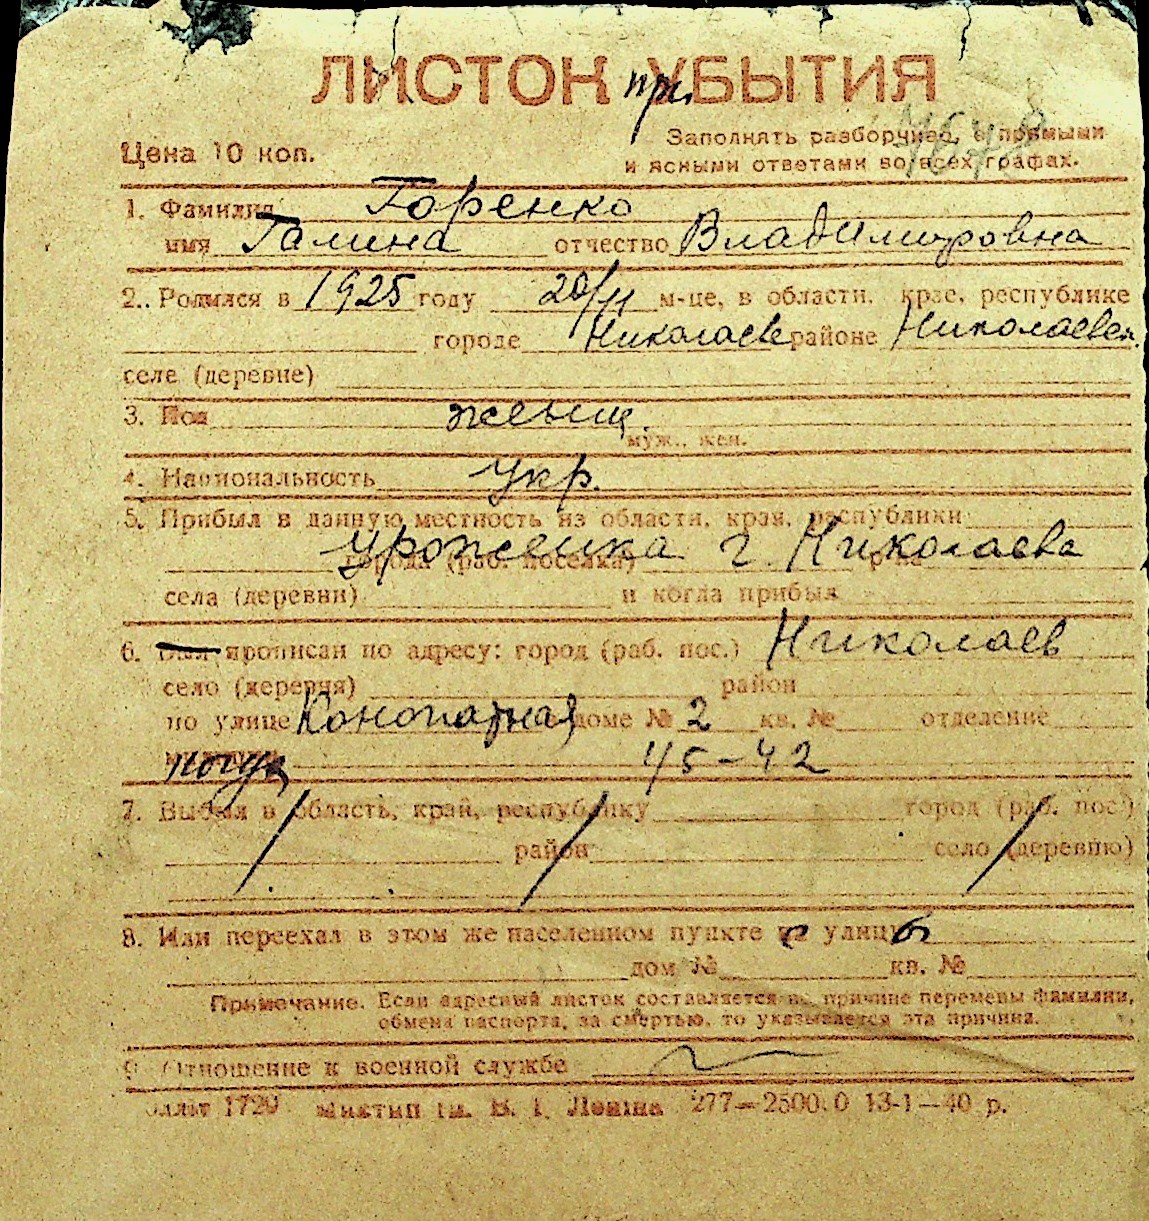 ЛИСТОК при УБЫТИЯ
Цена 10 коп.
Заполнять разборчиво, с прямыми
и ясными ответами во всех графах.
1. Фамилия Горенко
имя Галина отчество Владимировна
2. Родился в 1925 году 20/11 м-це, в области, крае, республике
городе Николаеве районе Николаевск.
селе (деревне)
3. Пол женщ.
муж., жен.
4. Национальность Укр.
5. Прибыл в данную местность из области, края, республики
уроженка г. Николаева
города (раб. поселка) р-на
села (деревни) и когда прибыл
6. Был прописан по адресу: город (раб. пос.) Николаев
село (деревня) район
по улице Конопатная доме № 2 кв. № отделение
милиции 45-42
7. Выбыл в область, край, республику город (раб. пос.)
район село (деревню)
8. Или переехал в этом же населенном пункте с улицы
дом № кв. №
Примечание. Если адресный листок составляется по причине перемены фамилии,
обмена паспорта, за смертью, то указывается эта причина.
9. Отношение к военной службе
1720 Миктип ім. В. І. Леніна 277—2500.0 13-1—40 р.